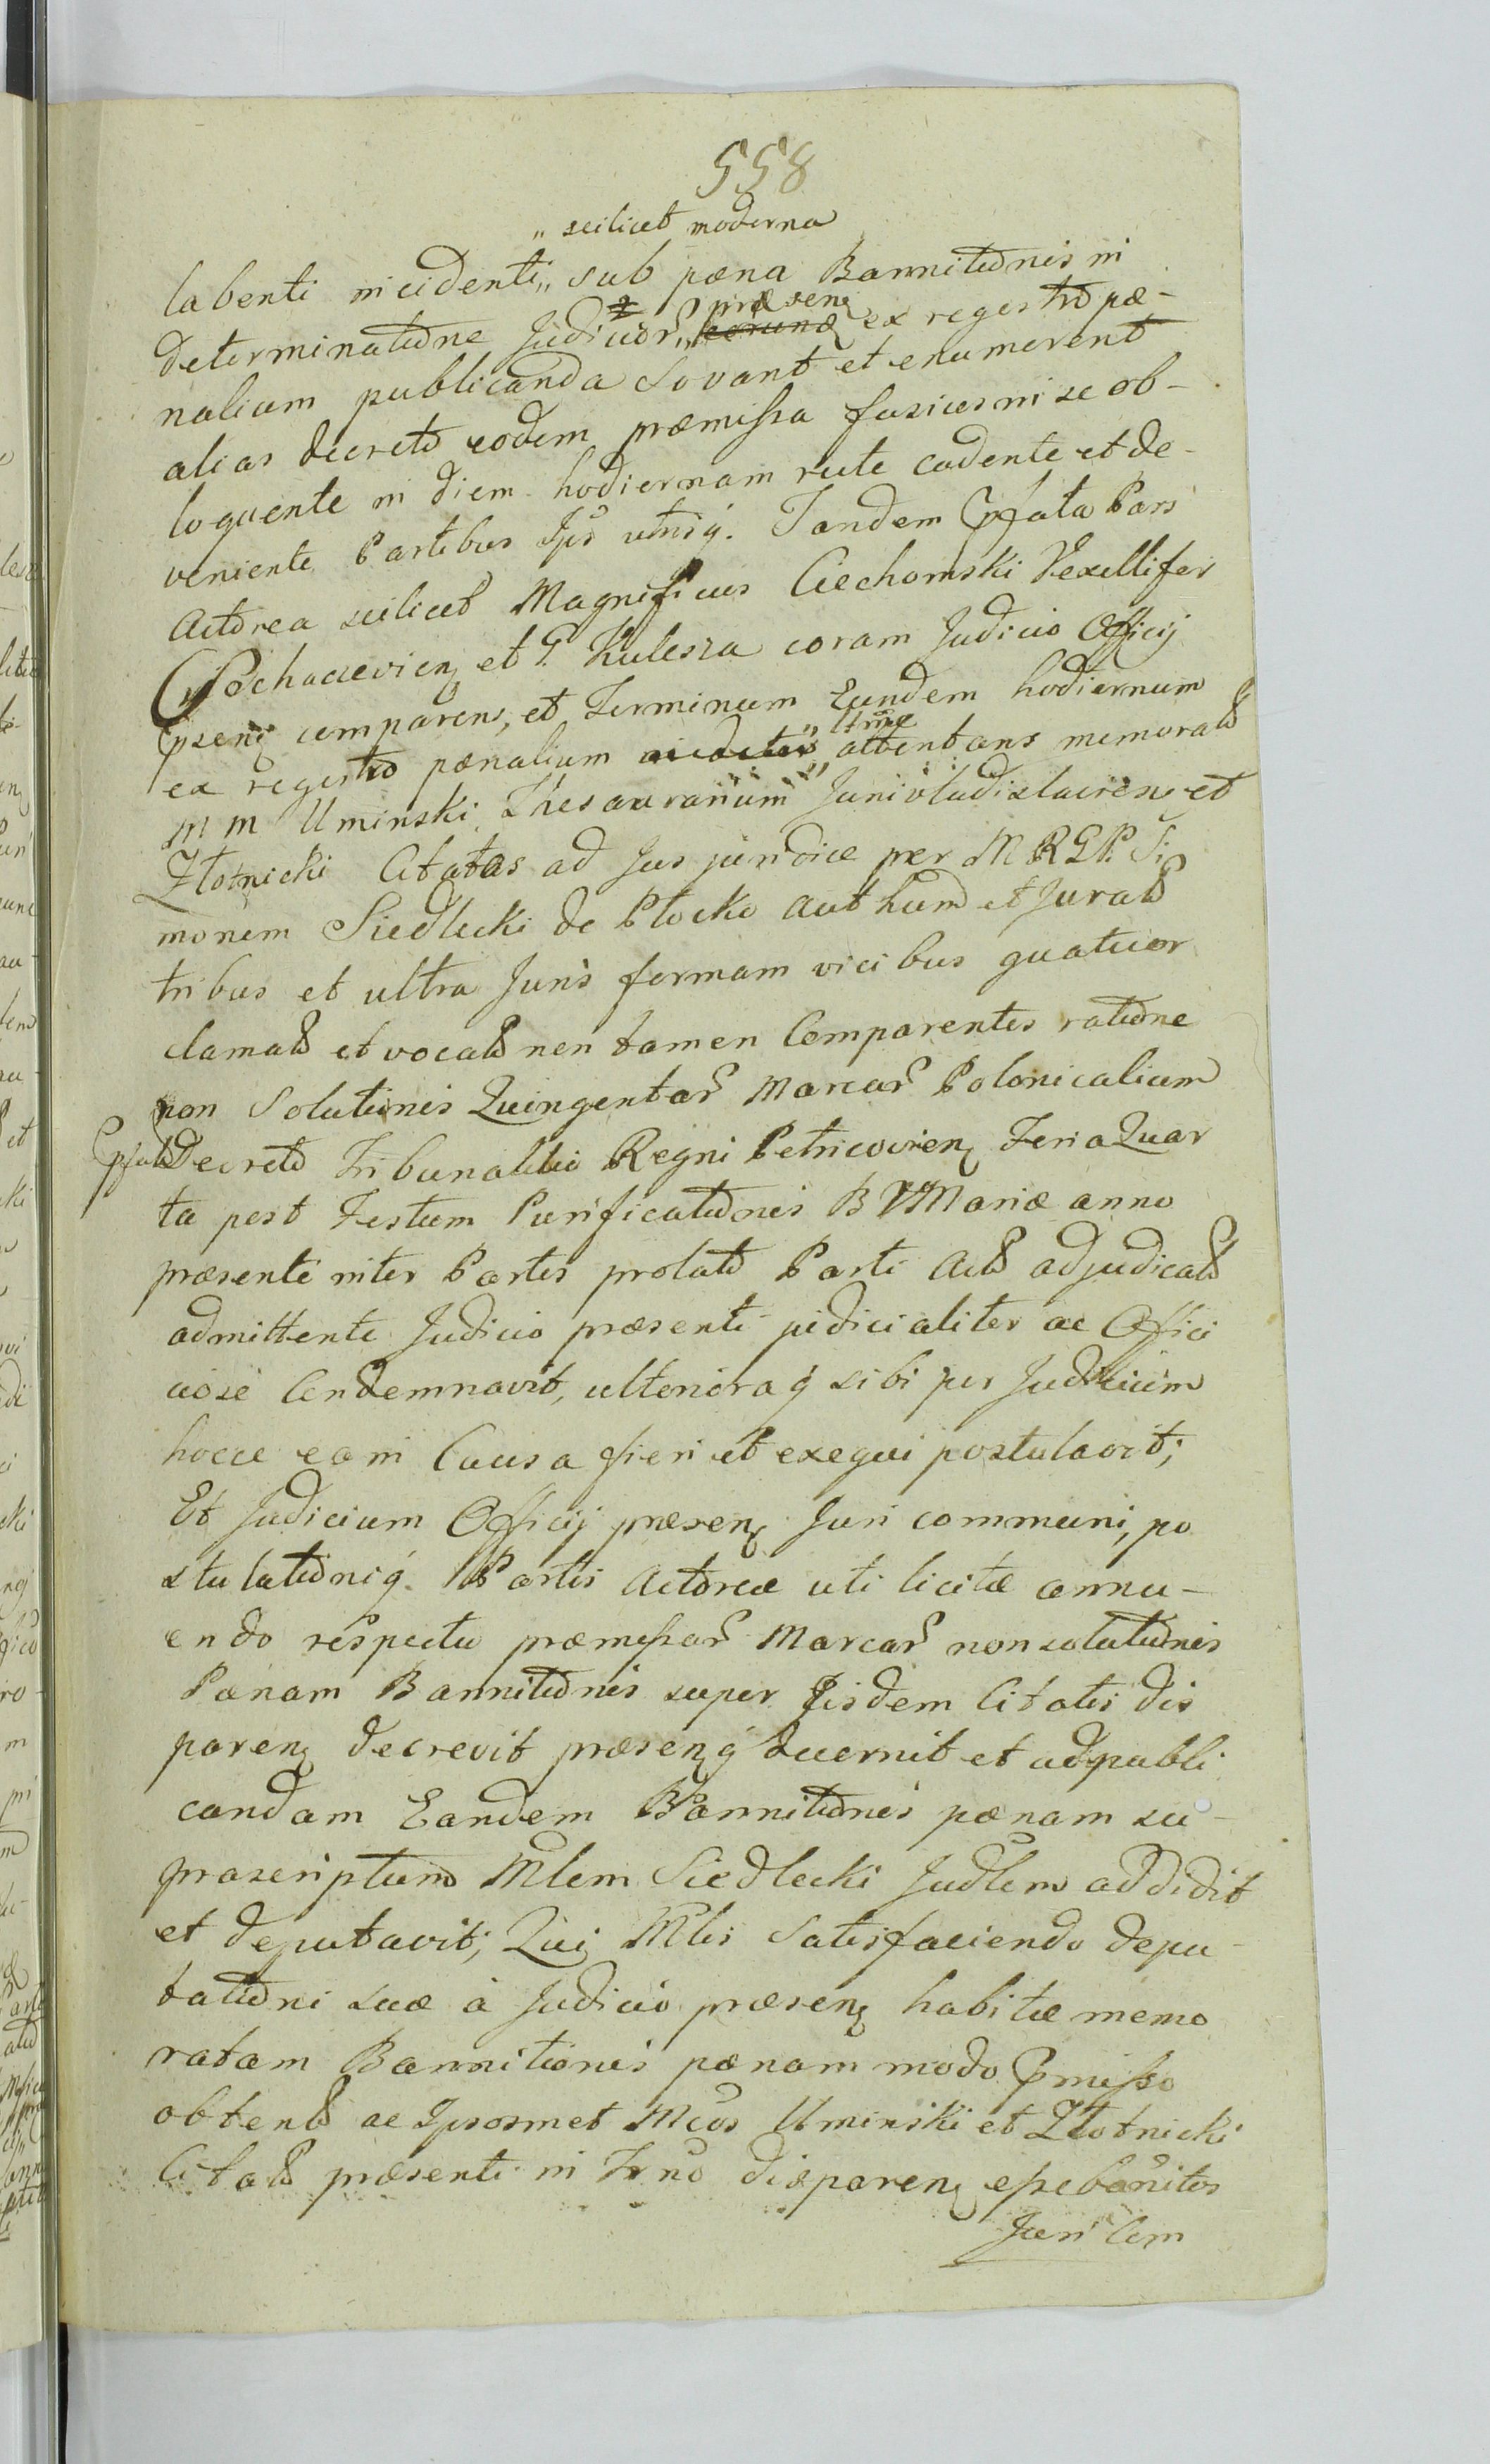 558
„ scilicet moderna
labenti incidenti „ sub pæna Bannitionis in
præsenꝫ
determinatione Judicior „ ex regestro pæ-
nalium publicanda sovant et enumerent
alias decreto eodem præmissa fusius in se ob-
loquente in diem hodiernam recte cadente et de-
veniente Partibus Ips utrisq. Tandem Ppfata Pars
Actorea scilicet Magnificus Ciechomski Vexillifer
Sochaczevienꝫ et G. Kulesza coram Judicio Officij
Ppsenꝫ comparens, et Terminum Eundem hodiernum
„ ltime
ex regestro pænalium „ attentans memorat
M M Uminski Thesaurarium Junivladislaviens et
Złotnicki Citatos ad Jus juridice per M R G P. Si
monem Siedlecki de Płocko authum et Jurat
tribus et ultra Juris formam vicibus quatuor
clamat et vocat non tamen Comparentes ratione
non Solutionis Quingentar Marcar Polonicalium
Ppfat Decreto Tribunalitio Regni Petricovienꝫ Feria Quar
ta post Festum Purificationis B V Mariæ anno
præsenti inter Partes prolato Parti Act adjudicat
admittente Judicio præsenti judicialiter ac Offici
iose Condemnavit, ulteriora q sibi per Judicium
hocce ea in Causa fieri et exequi postulavit;
Et Judicium Officij præsenꝫ Juri communi, po
stulationiq. Partis Actoreæ uti licitæ annu-
endo respectu præmissar Marcar non solutionis
Pænam Bannitionis super Eisdem Citatis dis
parenꝫ decrevit præsenꝫq decernit et ad publi
candam Eandem Bannitionis pænam su-
prascriptum Mlem Siedlecki Judlem addidit
et deputavit; Qui Mlis Satisfaciendo depu
tationi suæ à Judicio præsenꝫ habitæ memo
ratam Bannitionis pænam modo Ppmisso
obtent ac Ipsosmet Mcos Uminski et Złotnicki
Citat præsenti in Trno disparenꝫ esse banitos
Juri Com